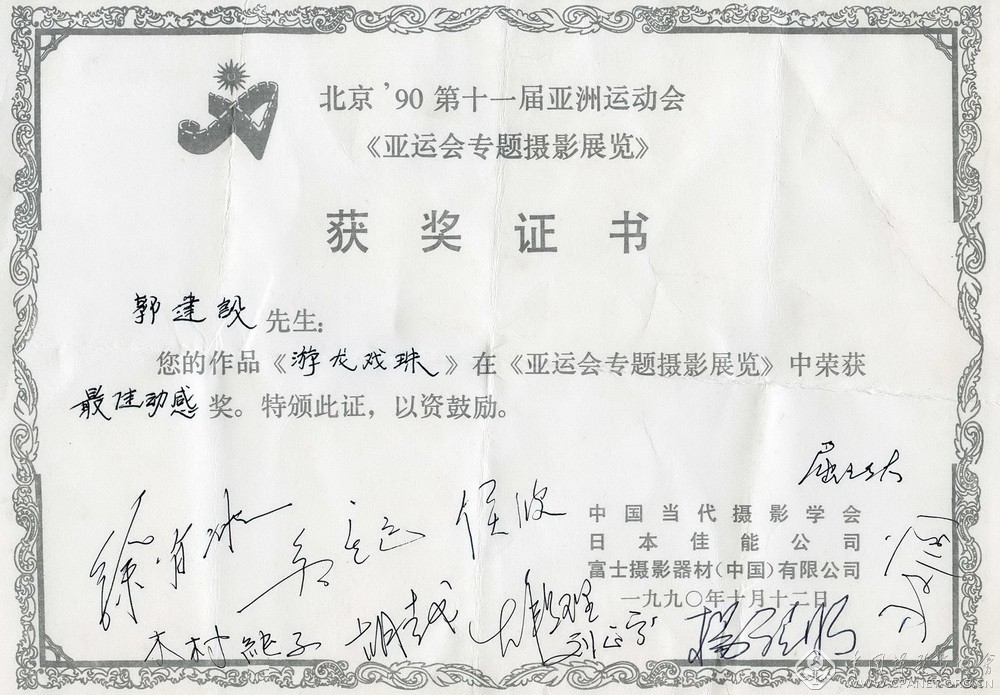 北京'90第十一届亚洲运动会
《亚运会专题摄影展览》
获奖证书
郭建设先生:
您的作品《游龙戏珠》在《亚运会专题摄影展览》中荣获
最佳动感奖。特颁此证，以资鼓励。
中国当代摄影学会
日本佳能公司
富士摄影器材(中国)有限公司
一九九〇年十月十二日
徐肖冰
侯波
木村純子
胡越
WWW.CPANET.ORG.CN